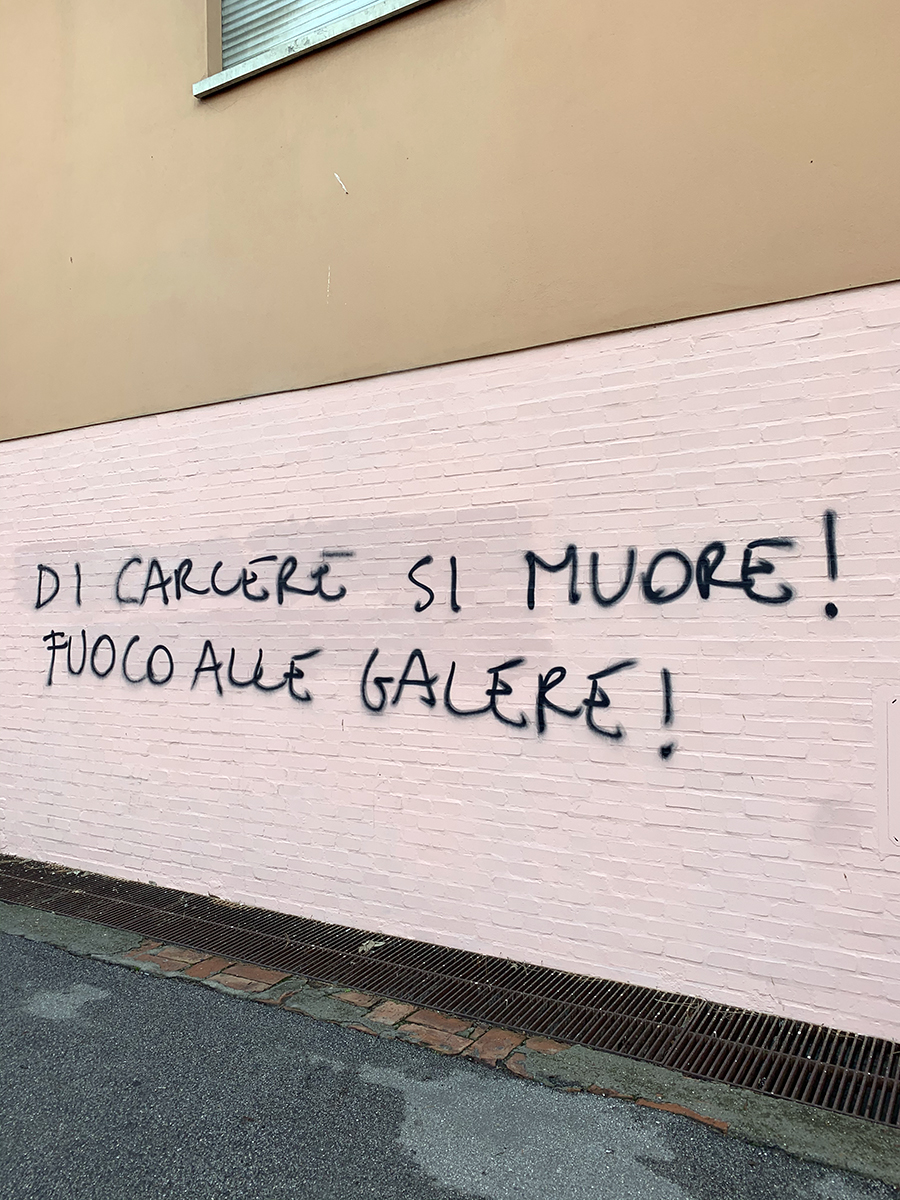 DI CARCERE SI MUORE!
FUOCO ALLE GALERE!